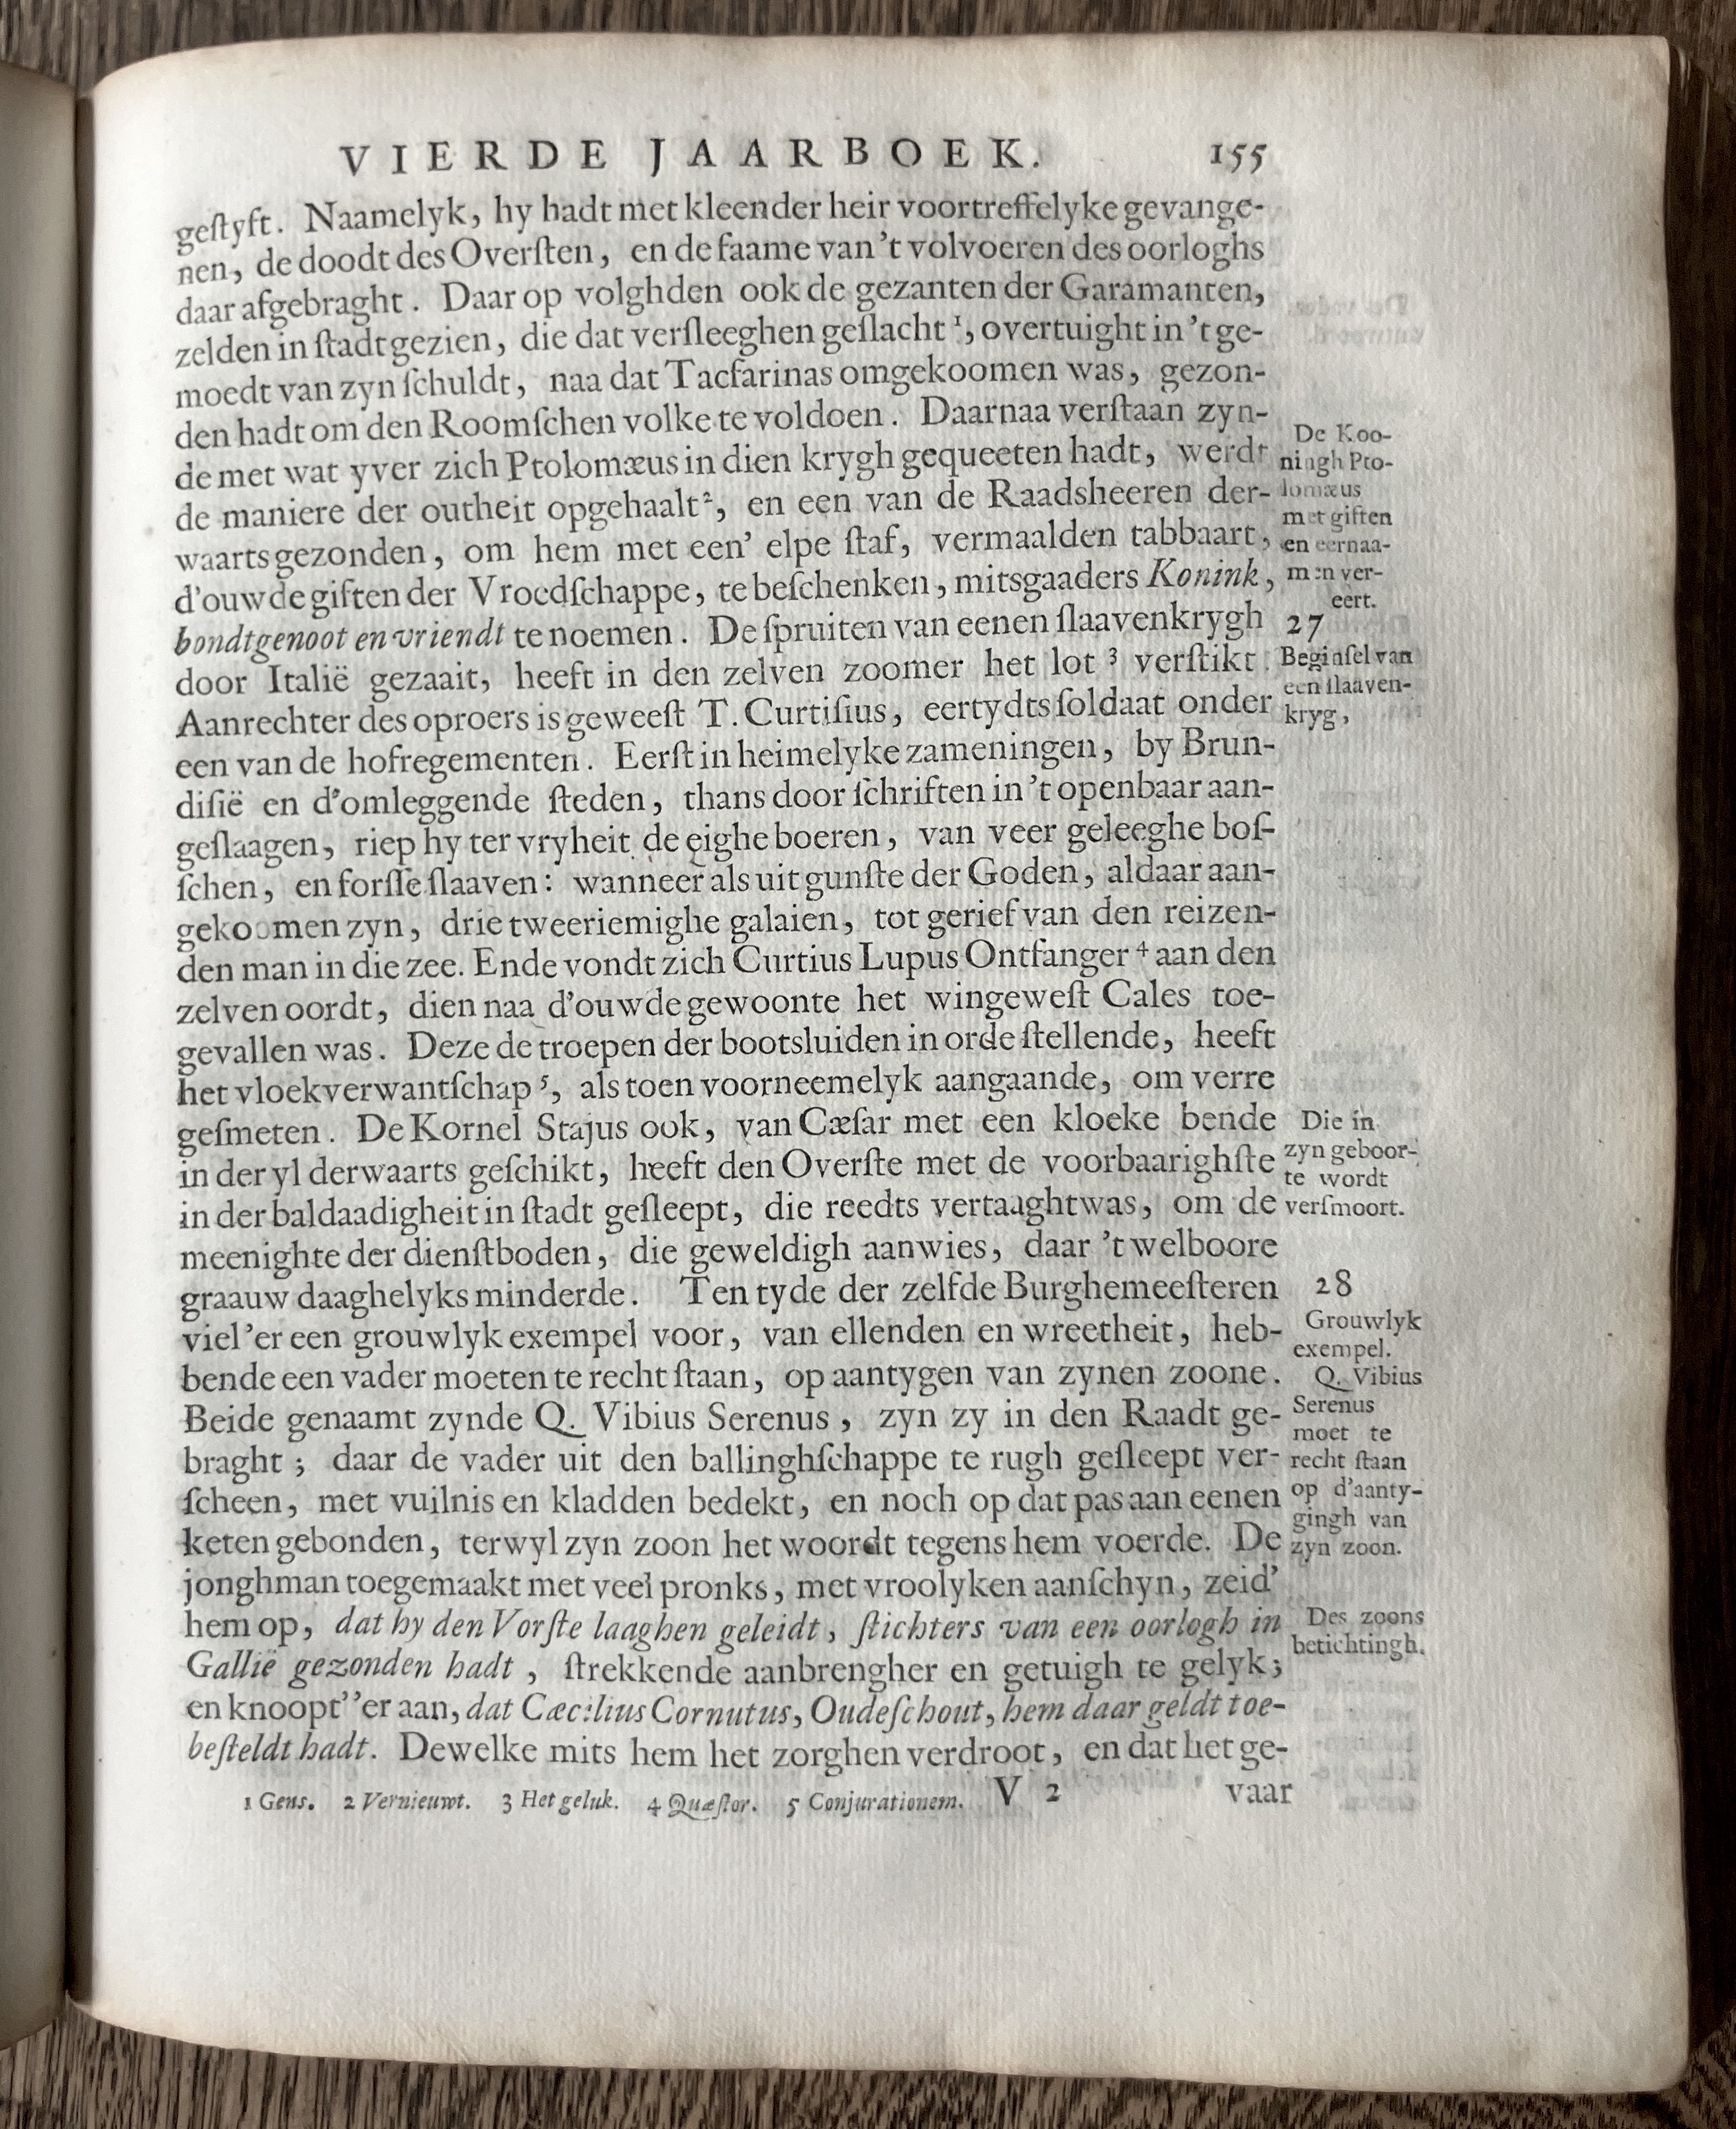 VIERDE JAARBOEK. 155
geſtyft. Naamelyk, hy hadt met kleender heir voortreffelyke gevange-
nen, de doodt des Overſten, en de faame van 't volvoeren des oorloghs
daar afgebraght. Daar op volghden ook de gezanten der Garamanten,
zelden in ſtadt gezien, die dat verſleeghen geſlacht ¹, overtuight in 't ge-
moedt van zyn ſchuldt, naa dat Tacfarinas omgekoomen was, gezon-
den hadt om den Roomſchen volke te voldoen. Daarnaa verſtaan zyn-
de met wat yver zich Ptolomæus in dien krygh gequeeten hadt, werdt
de maniere der outheit opgehaalt ², en een van de Raadsheeren der-
waarts gezonden, om hem met een' elpe ſtaf, vermaalden tabbaart,
d'ouwde giften der Vroedſchappe, te beſchenken, mitsgaaders Konink,
bondtgenoot en vriendt te noemen. De ſpruiten van eenen ſlaavenkrygh
door Italië gezaait, heeft in den zelven zoomer het lot ³ verſtikt.
Aanrechter des oproers is geweeſt T. Curtiſius, eertydts ſoldaat onder
een van de hofregementen. Eerſt in heimelyke zameningen, by Brun-
diſië en d'omleggende ſteden, thans door ſchriften in 't openbaar aan-
geſlaagen, riep hy ter vryheit de eighe boeren, van veer geleeghe boſ-
ſchen, en forſſe ſlaaven: wanneer als uit gunſte der Goden, aldaar aan-
gekoomen zyn, drie tweeriemighe galaien, tot gerief van den reizen-
den man in die zee. Ende vondt zich Curtius Lupus Ontfanger ⁴ aan den
zelven oordt, dien naa d'ouwde gewoonte het wingeweſt Cales toe-
gevallen was. Deze de troepen der bootsluiden in orde ſtellende, heeft
het vloekverwantſchap ⁵, als toen voorneemelyk aangaande, om verre
geſmeten. De Kornel Stajus ook, van Cæſar met een kloeke bende
in der yl derwaarts geſchikt, heeft den Overſte met de voorbaarighſte
in der baldaadigheit in ſtadt geſleept, die reedts vertaaght was, om de
meenighte der dienſtboden, die geweldigh aanwies, daar 't welboore
graauw daaghelyks minderde. Ten tyde der zelfde Burghemeeſteren
viel 'er een grouwlyk exempel voor, van ellenden en wreetheit, heb-
bende een vader moeten te recht ſtaan, op aantygen van zynen zoone.
Beide genaamt zynde Q. Vibius Serenus, zyn zy in den Raadt ge-
braght; daar de vader uit den ballinghſchappe te rugh geſleept ver-
ſcheen, met vuilnis en kladden bedekt, en noch op dat pas aan eenen
keten gebonden, terwyl zyn zoon het woordt tegens hem voerde. De
jonghman toegemaakt met veel pronks, met vroolyken aanſchyn, zeid'
hem op, dat hy den Vorſte laaghen geleidt, ſtichters van een oorlogh in
Gallië gezonden hadt, ſtrekkende aanbrengher en getuigh te gelyk;
en knoopt''er aan, dat Cæcilius Cornutus, Oudeſchout, hem daar geldt toe-
beſteldt hadt. Dewelke mits hem het zorghen verdroot, en dat het ge-
1 Gens. 2 Vernieuwt. 3 Het geluk. 4 Quæſtor. 5 Conjurationem. V 2 vaar
De Koo-
ningh Pto-
lomæus
met giften
en eernaa-
men ver-
eert.
27
Beginſel van
een ſlaaven-
kryg,
Die in
zyn geboor-
te wordt
verſmoort.
28
Grouwlyk
exempel.
Q. Vibius
Serenus
moet te
recht ſtaan
op d'aanty-
gingh van
zyn zoon.
Des zoons
betichtingh.